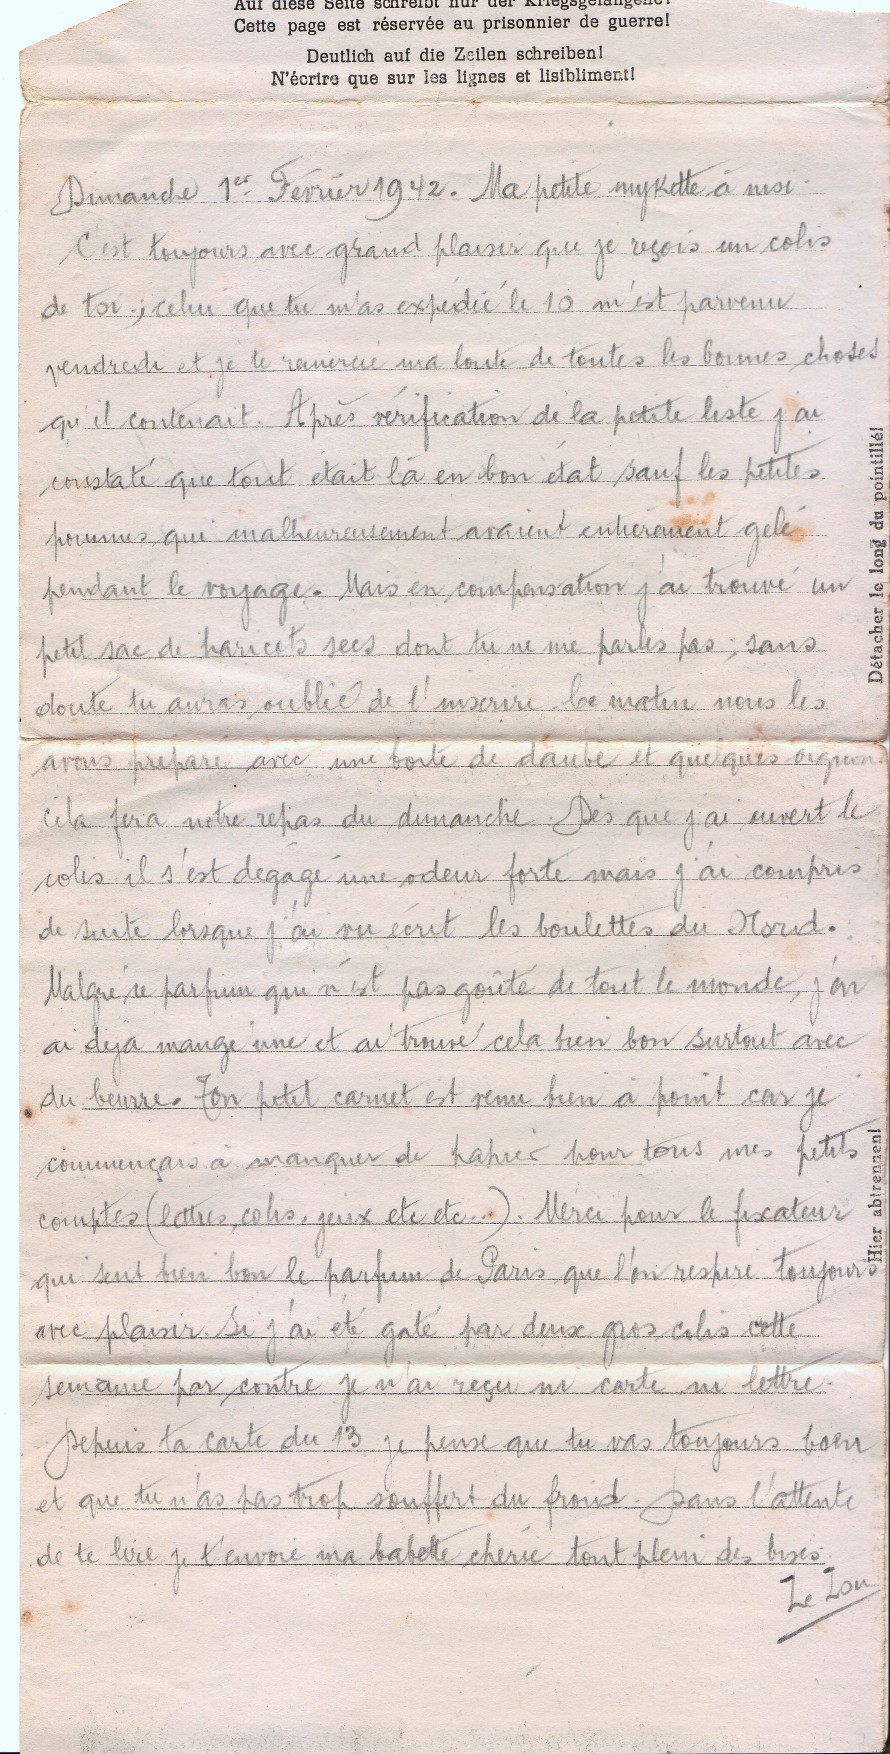 Auf diese Seite schreibt nur der Kriegsgefangene!
Cette page est réservée au prisonnier de guerre!
Deutlich auf die Zeilen schreiben!
N'écrire que sur les lignes et lisibliment!
Dimanche 1er Février 1942. Ma petite mykette à moi.
C'est toujours avec grand plaisir que je reçois un colis
de toi ; celui que tu m'as expédié le 10 m'est parvenu
vendredi et je te remercie ma loute de toutes les bonnes choses
qu'il contenait. Après vérification de la petite liste j'ai
constaté que tout était là en bon état sauf les petites
pommes qui malheureusement avaient entièrement gelé
pendant le voyage. Mais en compensation j'ai trouvé un
petit sac de haricots secs dont tu ne me parles pas, sans
doute tu auras oublié de l'inscrire. Ce matin nous les
avons préparé avec une boite de daube et quelques oignons
cela fera notre repas du dimanche. Dès que j'ai ouvert le
colis il s'est dégagé une odeur forte mais j'ai compris
de suite lorsque j'ai vu écrit les boulettes du Nord.
Malgré ce parfum qui n'est pas goûté de tout le monde, j'en
ai déjà mangé une et ai trouvé cela bien bon surtout avec
du beurre. Ton petit carnet est venu bien à point car je
commençais à manquer de papier pour tous mes petits
comptes (lettres, colis, jeux etc etc...). Merci pour le fixateur
qui sent bien bon le parfum de Paris que l'on respire toujours
avec plaisir. Si j'ai été gaté par deux gros colis cette
semaine par contre je n'ai reçu ni carte ni lettre.
Depuis ta carte du 13 je pense que tu vas toujours bien
et que tu n'as pas trop souffert du froid. Dans l'attente
de te lire je t'envoie ma babette chérie tout plein des bises.
Le Lou
Détacher le long du pointillé!
Hier abtrennen!